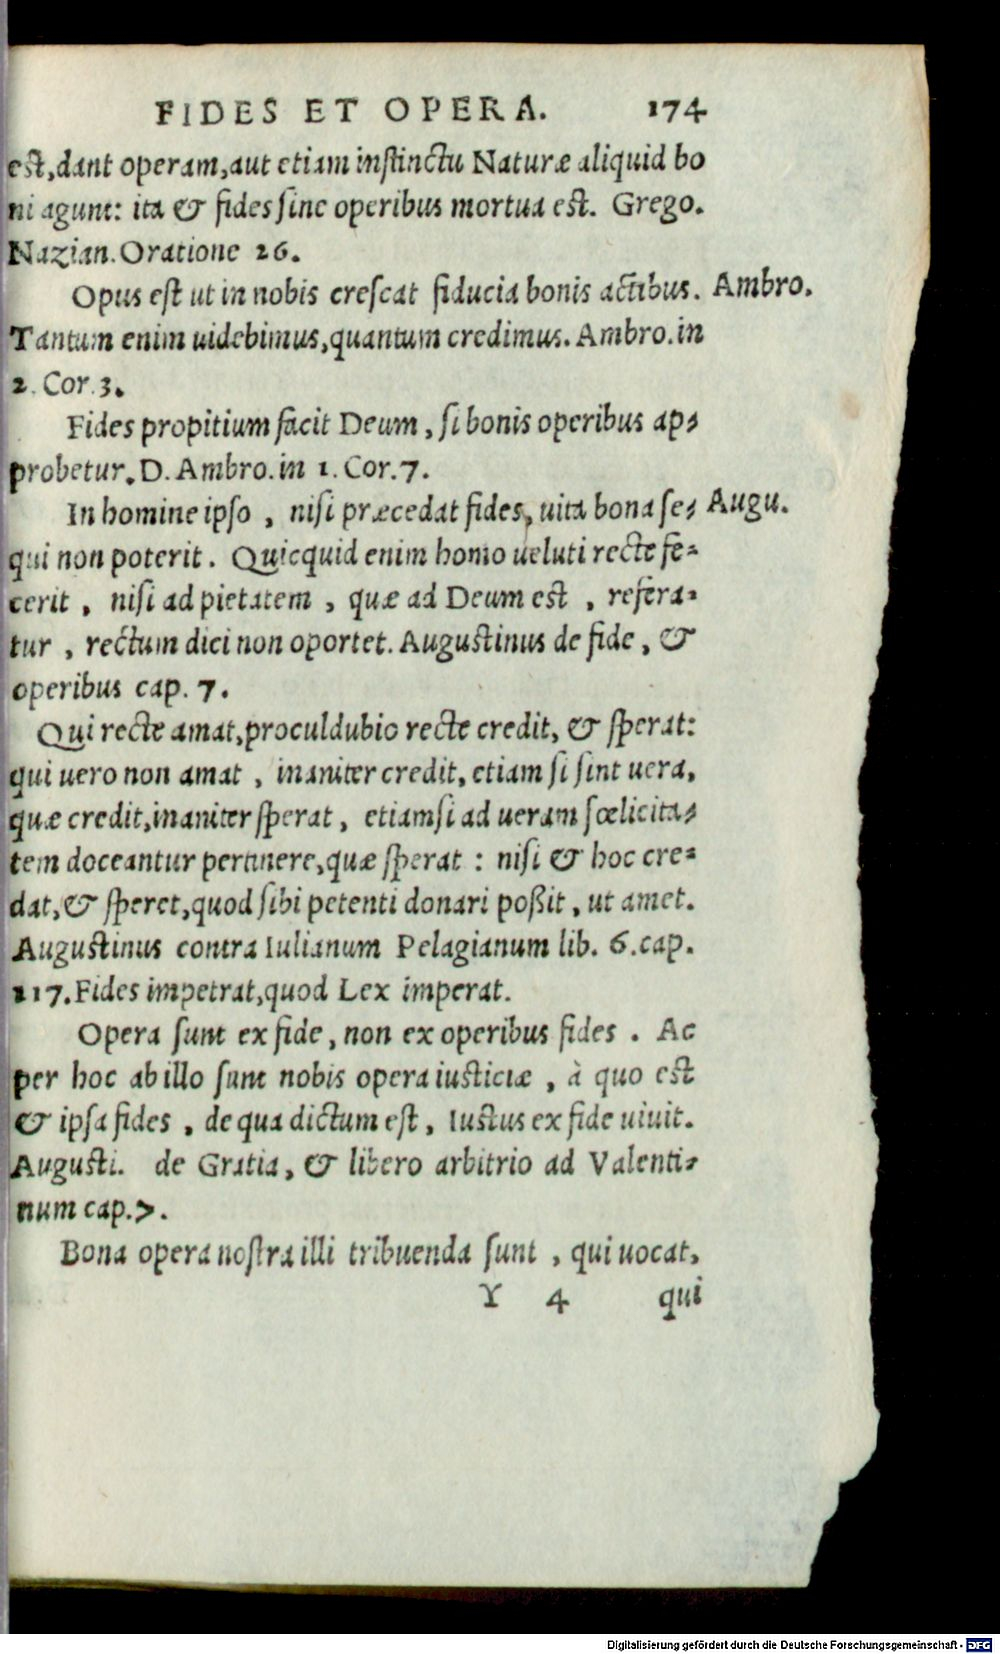 FIDES ET OPERA. 174
est, dant operam, aut etiam instinctu Naturæ aliquid bo
ni agunt: ita & fides sine operibus mortua est. Grego.
Nazian. Oratione 26.
Opus est ut in nobis crescat fiducia bonis actibus. Ambro.
Tantum enim uidebimus, quantum credimus. Ambro. in
2. Cor. 3.
Fides propitium facit Deum, si bonis operibus ap-
probetur. D. Ambro. in 1. Cor. 7.
In homine ipso, nisi præcedat fides, uita bona se- Augu.
qui non poterit. Quicquid enim homo ueluti recte fe-
cerit, nisi ad pietatem, quæ ad Deum est, refera-
tur, rectum dici non oportet. Augustinus de fide, &
operibus cap. 7.
Qui recte amat, proculdubio recte credit, & sperat:
qui uero non amat, inaniter credit, etiam si sint uera,
quæ credit, inaniter sperat, etiamsi ad ueram fœlicita-
tem doceantur pertinere, quæ sperat: nisi & hoc cre-
dat, & speret, quod sibi petenti donari poßit, ut amet.
Augustinus contra Iulianum Pelagianum lib. 6. cap.
117. Fides impetrat, quod Lex imperat.
Opera sunt ex fide, non ex operibus fides. Ac
per hoc ab illo sunt nobis opera iusticiæ, à quo est
& ipsa fides, de qua dictum est, Iustus ex fide uiuit.
Augusti. de Gratia, & libero arbitrio ad Valenti-
num cap. 7.
Bona opera nostra illi tribuenda sunt, qui uocat,
Y 4 qui
Digitalisierung gefördert durch die Deutsche Forschungsgemeinschaft - DFG